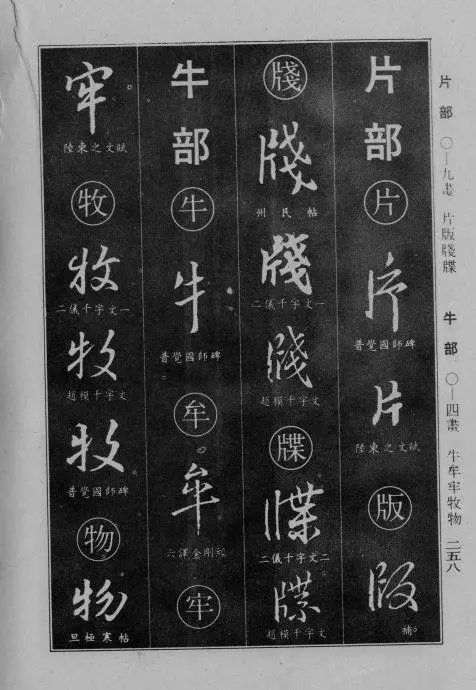 片部 〇—九畫 片版牋牒 牛部 〇—四畫 牛牟牢牧物 二五八
片部
片
片
普覺國師碑
片
陸柬之文賦
版
版
補
牋
牋
州民帖
牋
二儀千字文一
牋
趙模千字文
牒
牒
二儀千字文二
牒
趙模千字文
牛部
牛
牛
普覺國師碑
牟
牟
六譯金剛經
牢
牢
陸柬之文賦
牧
牧
二儀千字文一
牧
趙模千字文
牧
普覺國師碑
物
物
旦極寒帖